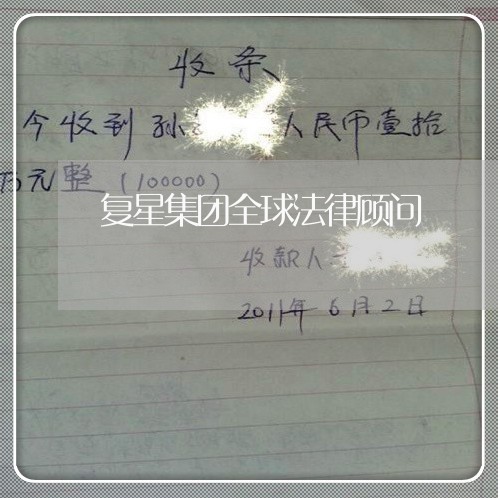 收条
今收到孙 人民币壹拾
万元整（100000）
复星集团全球法律顾问
收款人
2011年6月2日